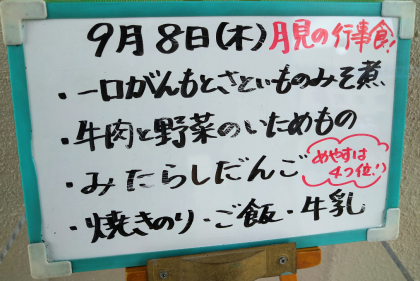 9月8日(木)月見の行事食!
・一口がんもとさといものみそ煮
・牛肉と野菜のいためもの
・みたらしだんご
めやすは
4つ位!!
・焼きのり・ご飯・牛乳